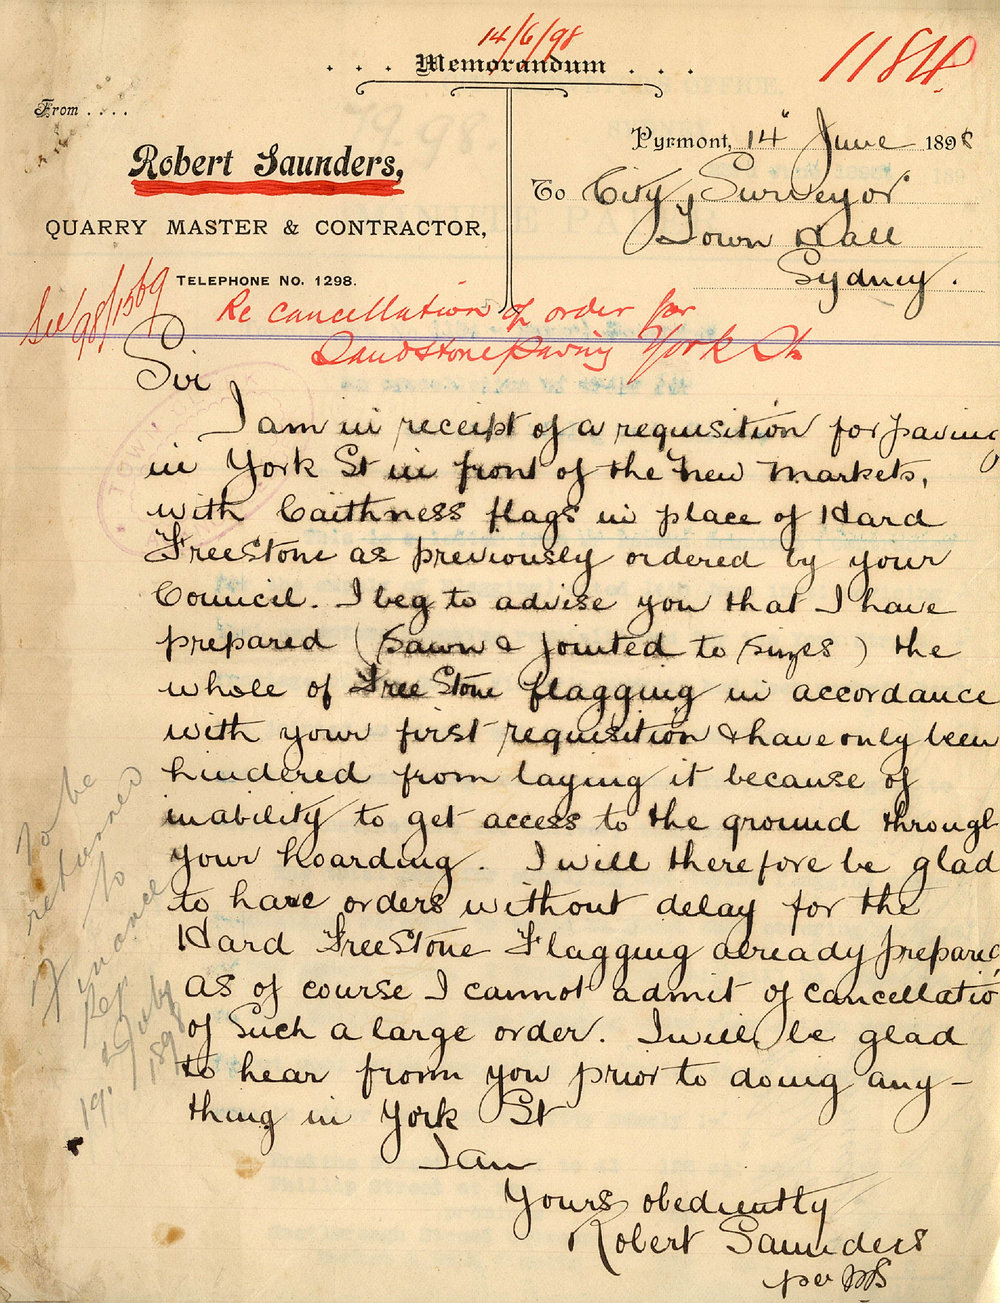 14/6/98
. . . Memorandum . . .
1184
From . . . .
Robert Saunders,
QUARRY MASTER & CONTRACTOR,
TELEPHONE NO. 1298.
Pyrmont, 14" June 1898
To City Surveyor
Town Hall
Sydney.
See 98/1569
Re cancellation of order for
Sandstone paving York St
Sir
I am in receipt of a requisition for paving
in York St in front of the New Markets,
with Caithness flags in place of Hard
FreeStone as previously ordered by your
Council. I beg to advise you that I have
prepared (Sawn & jointed to sizes) the
whole of Free Stone flagging in accordance
with your first requisition & have only been
hindered from laying it because of
inability to get access to the ground through
your hoarding. I will therefore be glad
to have orders without delay for the
Hard FreeStone Flagging already prepared
as of course I cannot admit of cancellatio
of Such a large order. I will be glad
to hear from you prior to doing any-
thing in York St
I am
Yours obediently
Robert Saunders
per
To be
returned
to
Finance
1898
TOWN